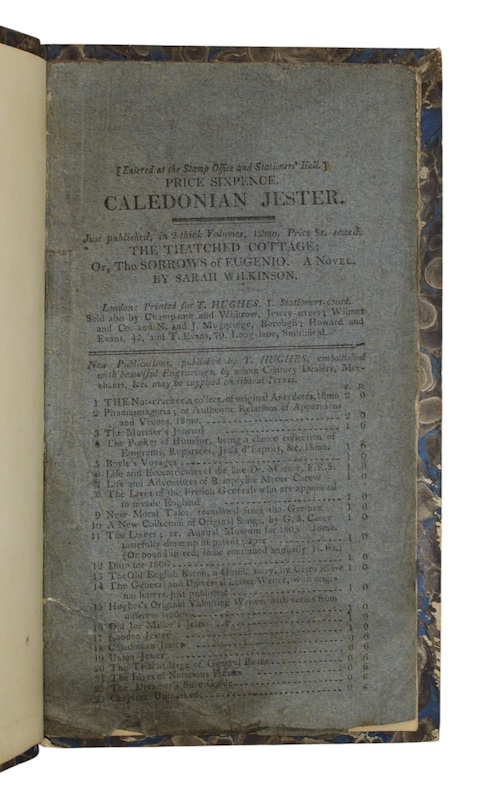 [Entered at the Stamp Office and Stationers' Hall.]
PRICE SIXPENCE.
CALEDONIAN JESTER.
Just published, in 2 thick Volumes, 12mo. Price 8s. sewed.
THE THATCHED COTTAGE;
Or, The SORROWS of EUGENIO. A NOVEL.
BY SARAH WILKINSON.
London: Printed for T. HUGHES, 1. Stationers-court.
Sold also by Champante and Whitrow, Jewry-street; Wilmot
and Co. and N. and J. Muggeridge, Borough; Howard and
Evans, 42, and T. Evans, 79, Long-lane, Smithfield.
New Publications, published by T. HUGHES, embellished
with beautiful Engravings, by whom Country Dealers, Mer-
chants, &c. may be supplied on liberal Terms.
1 THE Nut-cracker, a collect. of original Anecdotes, 18mo 2 0
2 Phantasmagoria; or Authentic Relations of Apparitions
and Visions, 18mo.
3 The Mariner's Journal 1 0
4 The Pocket of Humour, being a choice collection of
Epigrams, Repartees, Jeux d'Esprits, &c. 18mo.
5 Boyle's Voyages
6 Life and Eccentricities of the late Dr. Monsey, F.R.S. 1 0
7 Life and Adventures of Bampfylde Moore Carew 1 0
8 The Lives of the French Generals who are appointed
to invade England 1 0
9 New Moral Tales, translated from the German 1 0
10 A New Collection of Original Songs, by G. S. Carey 1 0
11 The Linnet; or, Annual Museum for 1805.
tastefully done up in patent paper
(Or bound in red; to be continued annually
12 Ditto for 1806
13 The Old English Baron, a Gothic Story, by Clara Reeve 1 0
14 The General and Universal Letter Writer, with origi-
nal letters, just published 1 0
15 Hughes's Original Valentine Writer, with verses from
different trades
16 Old Joe Miller's Jests
17 London Jester
18 Caledonian Jester
19 Union Jester
20 The Trial at large of General Picton 0 6
21 The Lives of Notorious Pirates 0 6
The Dreamer's Sure Guide 0 6